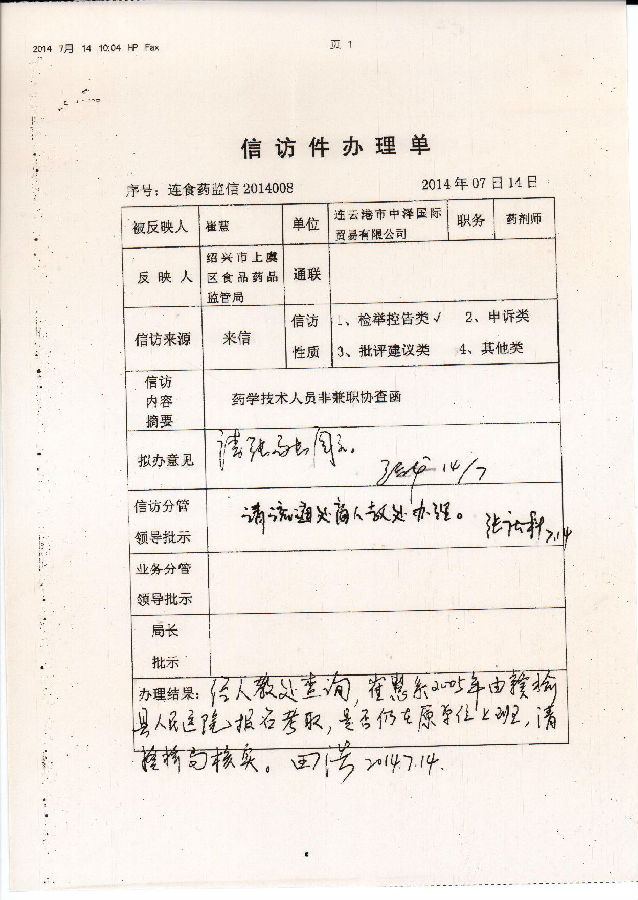 2014 7月 14 10:04 HP Fax 页 1
信访件办理单
序号：连食药监信2014008 2014年07日14日
被反映人 崔慧 单位 连云港市中泽国际贸易有限公司 职务 药剂师
反映人 绍兴市上虞区食品药品监管局 通联
信访来源 来信 信访性质 1、检举控告类√ 2、申诉类
3、批评建议类 4、其他类
信访内容摘要 药学技术人员非兼职协查函
拟办意见 请张局长阅示。
14/7
信访分管领导批示 请流通处商人教处办理。
7.14
业务分管领导批示
局长批示
办理结果：经人教处查询，崔慧系2005年由赣榆
县人民医院报名考取，是否仍在原单位上班，请
赣榆局核实。田浩 2014.7.14.